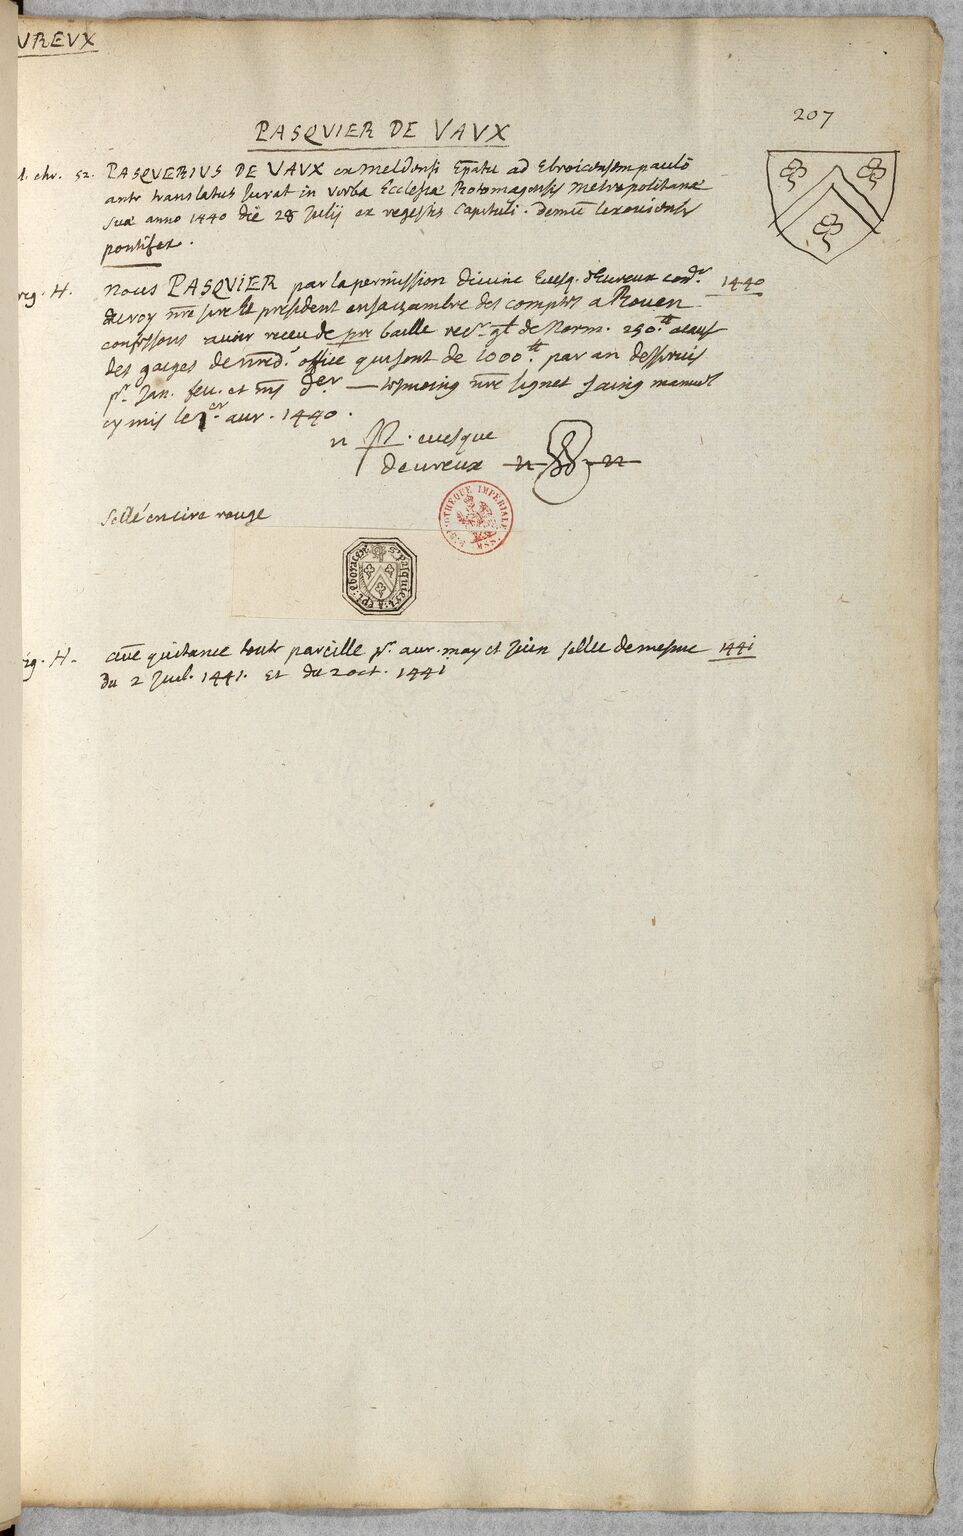 UREVX
207
PASQVIER DE VAVX
l. chr. 52. PASQVERIVS DE VAVX ex meldensi Epatu ad Ebroicensem paulo
ante translatus Jurat in verba Ecclesiæ Rotomagensis metropolitanæ
suæ anno 1440 die 28 Julij ex regestis Capituli. demũ lexoviensis
pontifex.
rig. H. Nous PASQVIER par la permission divine Evesq. d'Evreux conser 1440
du roy nre sire et president en sa chambre des comptes a Rouen
confessons avoir receu de pre baille recr gl de Norm. 250 tt
des gaiges de nred. office qui sont de 1000 tt par an desservis
pr Jan. fev. et ms der — tesmoing nre signet saing manuel
cy mis le 1er avr. 1440.
P. evesque
devreux
Sellé en cire rouge
S. PASQUIER
BIBLIOTHÈQUE IMPÉRIALE MSS.
rig. H. une quitance toute pareille pr avr. may et Juin sellée de mesme 1441
du 2 Juil. 1441. et du 2 oct. 1441